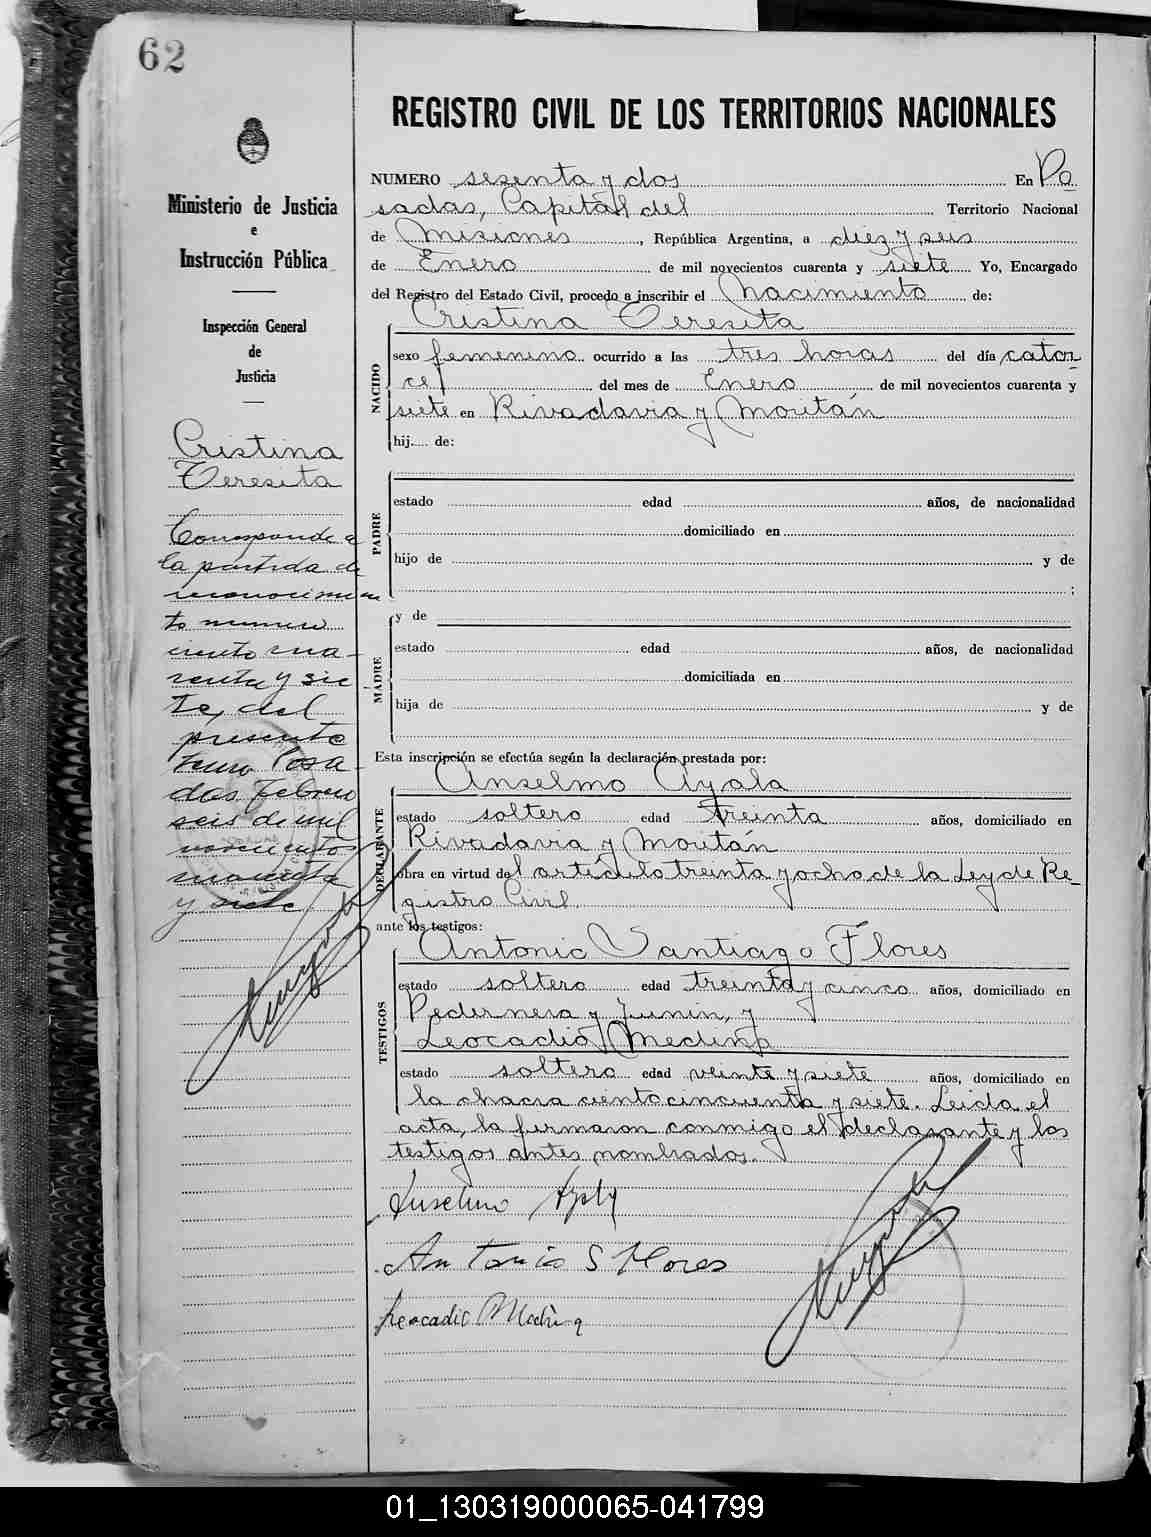 62
REGISTRO CIVIL DE LOS TERRITORIOS NACIONALES
Ministerio de Justicia
e
Instrucción Pública
Inspección General
de
Justicia
Cristina
Teresita
Corresponde a
la partida de
reconocimien
to numero
ciento cua-
renta y sie-
te, del
presente
tomo Posa-
das, Febrero
seis de mil
novecientos
cuarenta
y siete.
NUMERO sesenta y dos En Po
sadas, Capital del Territorio Nacional
de Misiones, República Argentina, a diez y seis
de Enero de mil novecientos cuarenta y siete Yo, Encargado
del Registro del Estado Civil, procedo a inscribir el Nacimiento de:
Cristina Teresita
NACIDO
sexo femenino ocurrido a las tres horas del día cator
ce del mes de Enero de mil novecientos cuarenta y
siete en Rivadavia y Moritán
hij.... de:
PADRE
estado edad años, de nacionalidad
domiciliado en
hijo de y de
;
MADRE
y de
estado edad años, de nacionalidad
domiciliada en
hija de y de
Esta inscripción se efectúa según la declaración prestada por:
Anselmo Ayala
DECLARANTE
estado soltero edad treinta años, domiciliado en
Rivadavia y Moritán
obra en virtud del artículo treinta y ocho de la Ley de Re-
gistro Civil.
ante los testigos:
Antonio Santiago Flores
TESTIGOS
estado soltero edad treinta y cinco años, domiciliado en
Pedernera y Junin, y
Leocadio Medina
estado soltero edad veinte y siete años, domiciliado en
la chacra ciento cincuenta y siete. Leida el
acta, la firmaron conmigo el declarante y los
testigos antes nombrados.
Anselmo Ayala
Antonio S Flores
Leocadio Medina
01_130319000065-041799